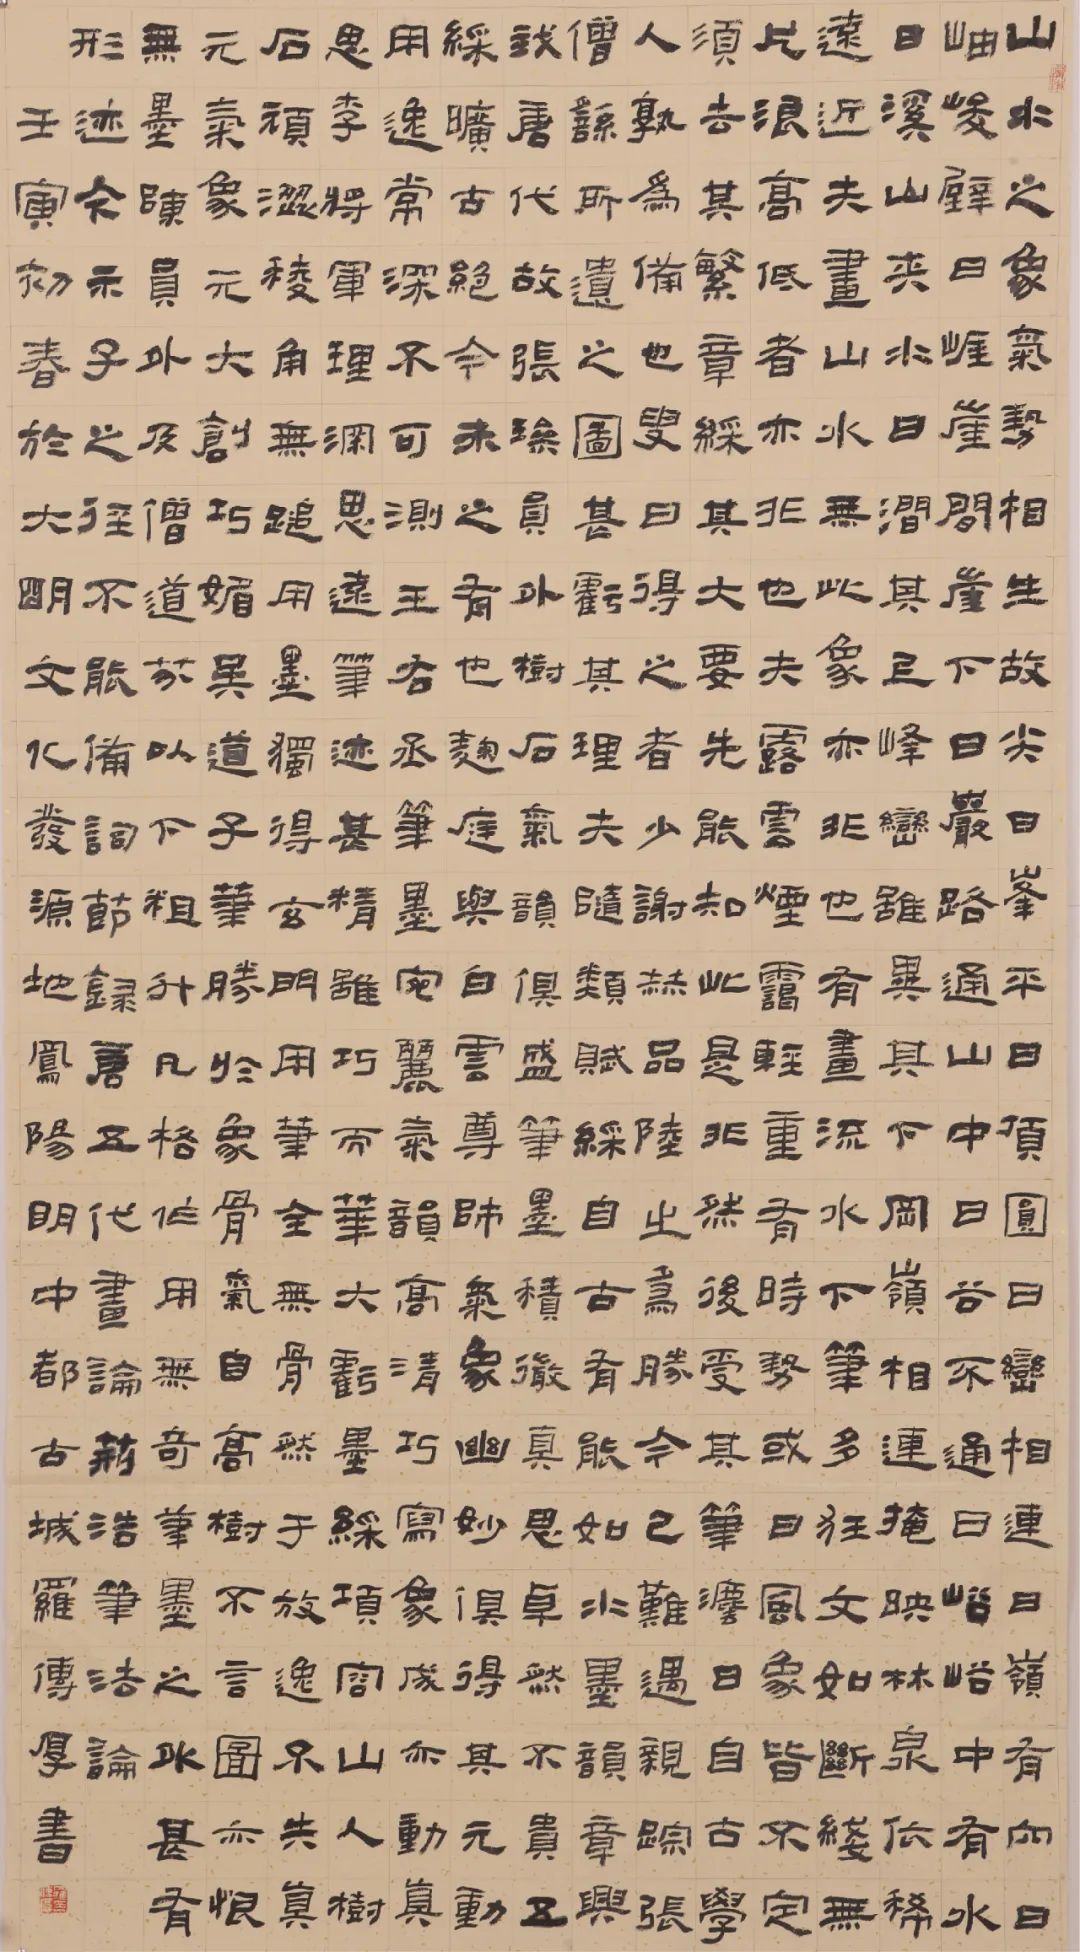 山水之象氣勢相生故尖曰峯平曰頂圓曰巒相連曰嶺有穴曰
岫峻壁曰崕崖間崖下曰巖路通山中曰谷不通曰峪峪中有水
曰溪山夾水曰澗其上峰巒雖異其下岡嶺相連掩映林泉依稀
遠近夫畫山水無此象亦非也有畫流水下筆多狂文如斷綫無
片浪高低者亦非也夫露雲煙靄輕重有時勢或曰風象皆不定
須去其繁章綵其大要先能知此是非然後受其筆灋曰自古學
人孰為備也叟曰得之者少謝赫品陸止為勝今已難遇親踪張
僧繇所遺之圖甚虧其理夫隨類賦綵自古有能如水墨韻章興
我唐代故張璪員外樹石氣韻俱盛筆墨積徽真思卓然不貴五
綵曠古絕今未之有也麴庭與白雲尊師氣象幽妙俱得其元動
用逸常深不可測王右丞筆墨宛麗氣韻高清巧寫象成亦動真
思李將軍理深思遠筆迹甚精雖巧而華大虧墨綵項容山人樹
石頑澀稜角無用墨獨得玄門用筆全無骨然于放逸不失真
元氣象元大創巧媚吳道子筆勝於象骨氣自高樹不言圖亦恨
無墨陳員外及僧道芬以下粗升凡格作用無奇筆墨之行甚有
形迹今示子之徑不能備詞節錄唐五代畫論荊浩筆法論
壬寅初春於大明文化發源地鳳陽明中都古城羅傳厚書